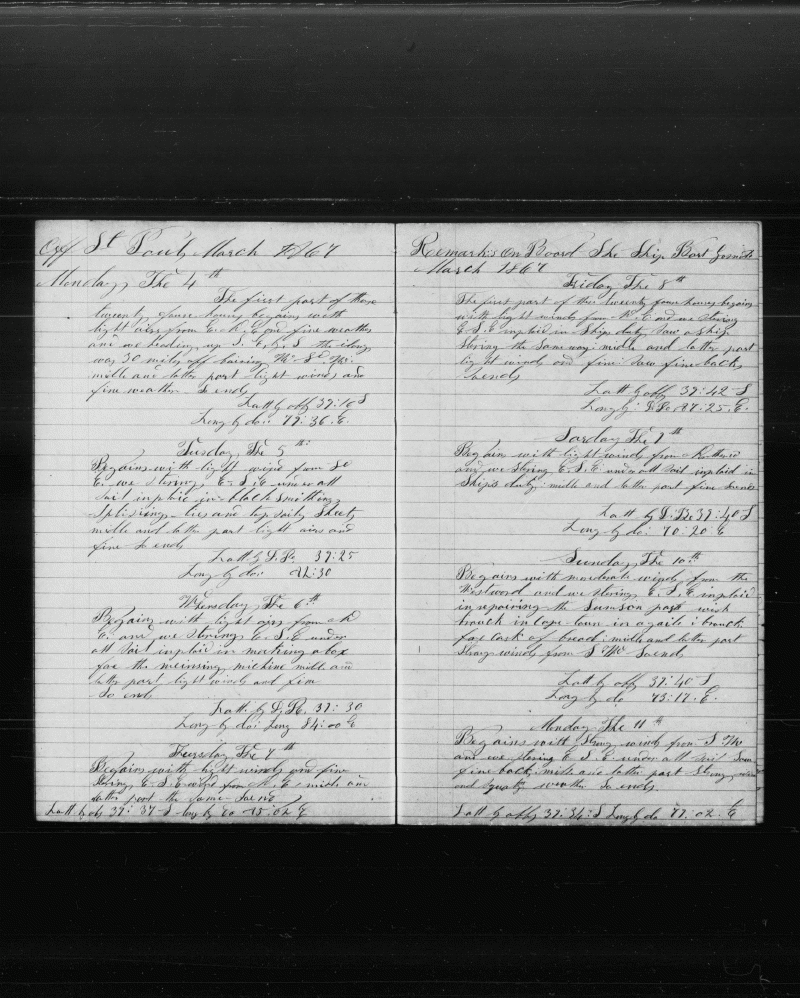 Off St Pauls March 1867
Monday The 4th
The first part of those
twenty foure hours begains with
light airs from E. N. E and fine weather
and we heading up S. E. S. the
was 30 miles off bairing
midle and latter part light winds and
fine weather So ends
Latt by obs 37:10 S
Long by do: 77:36 E.
Tusday The 5th
Begains with light wind from
E. we stering E. S. E under all
sail inplaid in black Smithing
Splising ties and topsails Sheets
midle and latter part light airs and
fine So ends
Latt by D. R. 37:25
Long by do: 82:30
Wensday The 6th
Begains with light airs from
E. and we stering E. S. E under
all sail inplaid in making a box
for the meinsing michine midle and
latter part light winds and fine
So ends
Latt by D. R. 37:30
Long by do: Long 84:00 E
Thursday The 7th
Begains with light winds and fine
Stering E. S. E wind from N. E. midle and
latter part the same So ends
Latt by obs 37:37 S Long by do 85:02 E
Remarks On Board The Ship Bart Gosnold
March 1867
Friday The 8th
The first part of the twenty four hours begains
with light winds from N. E and we stering
E. S. E inplaid in Ships duty Saw a Ship
stering the same way: midle and latter part
light winds and fine Saw fine backs
So ends
Latt by obs 37:42 S
Long by D. R. 87:25. E.
Sarday The 9th
Begains with light winds from
and we stering E. S. E under all Sail inplaid in
Ships duty midle and latter part fine So ends
Latt by D. R. 37:40 S
Long by do: 70:20 E
Sunday The 10th
Begains with moderate winds from the
Westword and we stering E. S. E inplaid
in repairing the Samson post wich
broack in Cope town in a gaile i
for lack of bread: midle and latter part
Strong winds from S We So ends
Latt by obs 37:40 S
Long by do 73:17. E.
Monday The 11th
Begains with Strong winds from S We
and we stering E S. E under all Sail Saw
fine back midle and latter part Strong winds
and squaly weather So ends
Latt by obs 37:34: S Long by do 77:02. E